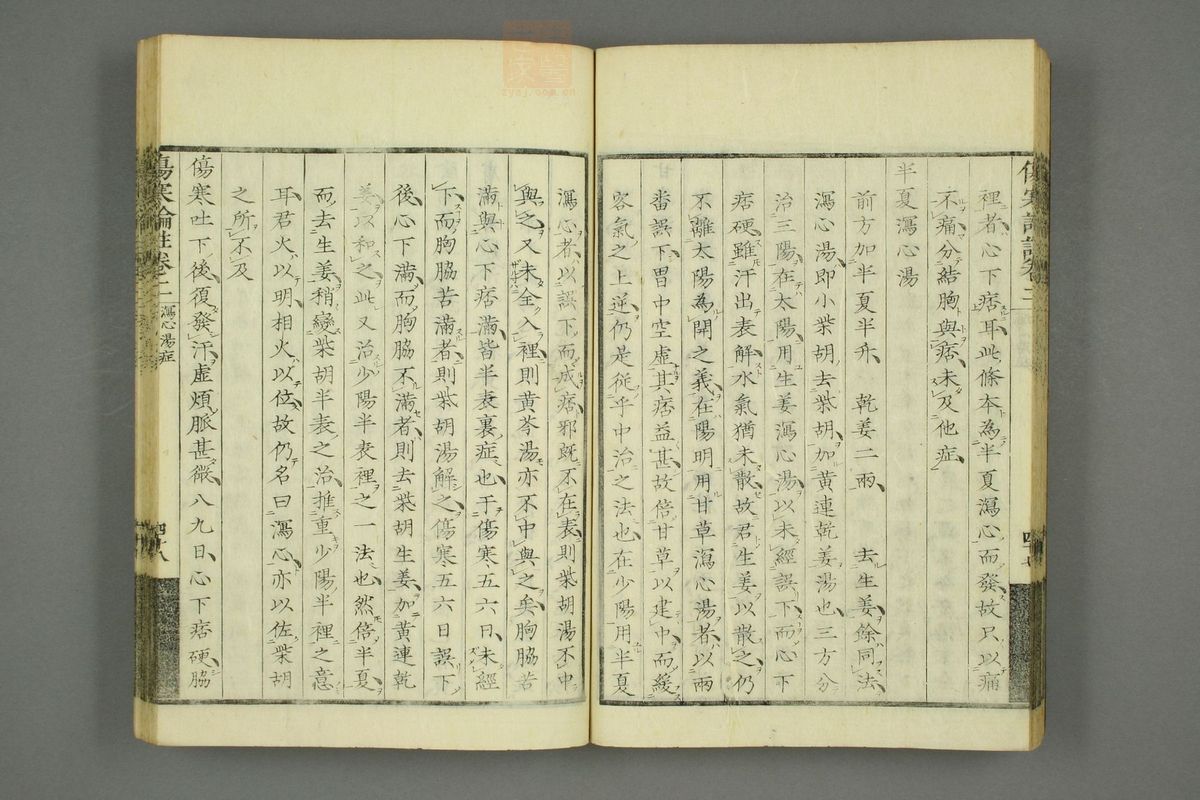 裡者心下痞耳此條本為半夏瀉心而發故只以痛
不痛分結胸與痞未及他症
半夏瀉心湯
前方加半夏半升 乾姜二兩 去生姜餘同法
瀉心湯即小柴胡去柴胡加黃連乾姜湯也三方分
治三陽在太陽用生姜瀉心湯以未經誤下而心下
痞硬雖汗出表解水氣猶未散故君生姜以散之仍
不離太陽為開之義在陽明用甘草瀉心湯者以兩
番誤下胃中空虛其痞益甚故倍甘草以建中而緩
客氣之上逆仍是從乎中治之法也在少陽用半夏
瀉心者以誤下而成痞邪既不在表則柴胡湯不中
與之又未全入裡則黃芩湯亦不中與之矣胸脇苦
滿與心下痞滿皆半表裏症也于傷寒五六日未經
下而胸脇苦滿者則柴胡湯解之傷寒五六日誤下
後心下滿而胸脇不滿者則去柴胡生姜加黃連乾
姜以和之此又治少陽半表裡之一法也然倍半夏
而去生姜稍變柴胡半表之治推重少陽半裡之意
耳君火以明相火以位故仍名曰瀉心亦以佐柴胡
之所不及
傷寒吐下後復發汗虛煩脈甚微八九日心下痞硬脇
傷寒論註卷之二 瀉心湯症 四十八
zysj.com.cn